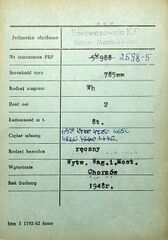 Jednostka służbowa
Parowozownia K.P.
Nr inwentarza PKP
5'W 988 2598-S
Szerokość toru 785mm
Rodzaj wagonu Wh
Ilość osi 2
Ładowność w t. 8t.
Ciężar własny
Rodzaj hamulca ręczny
Wytwórnia Wytw. Wag.i Most.
Chorzów
Rok budowy 1948r.